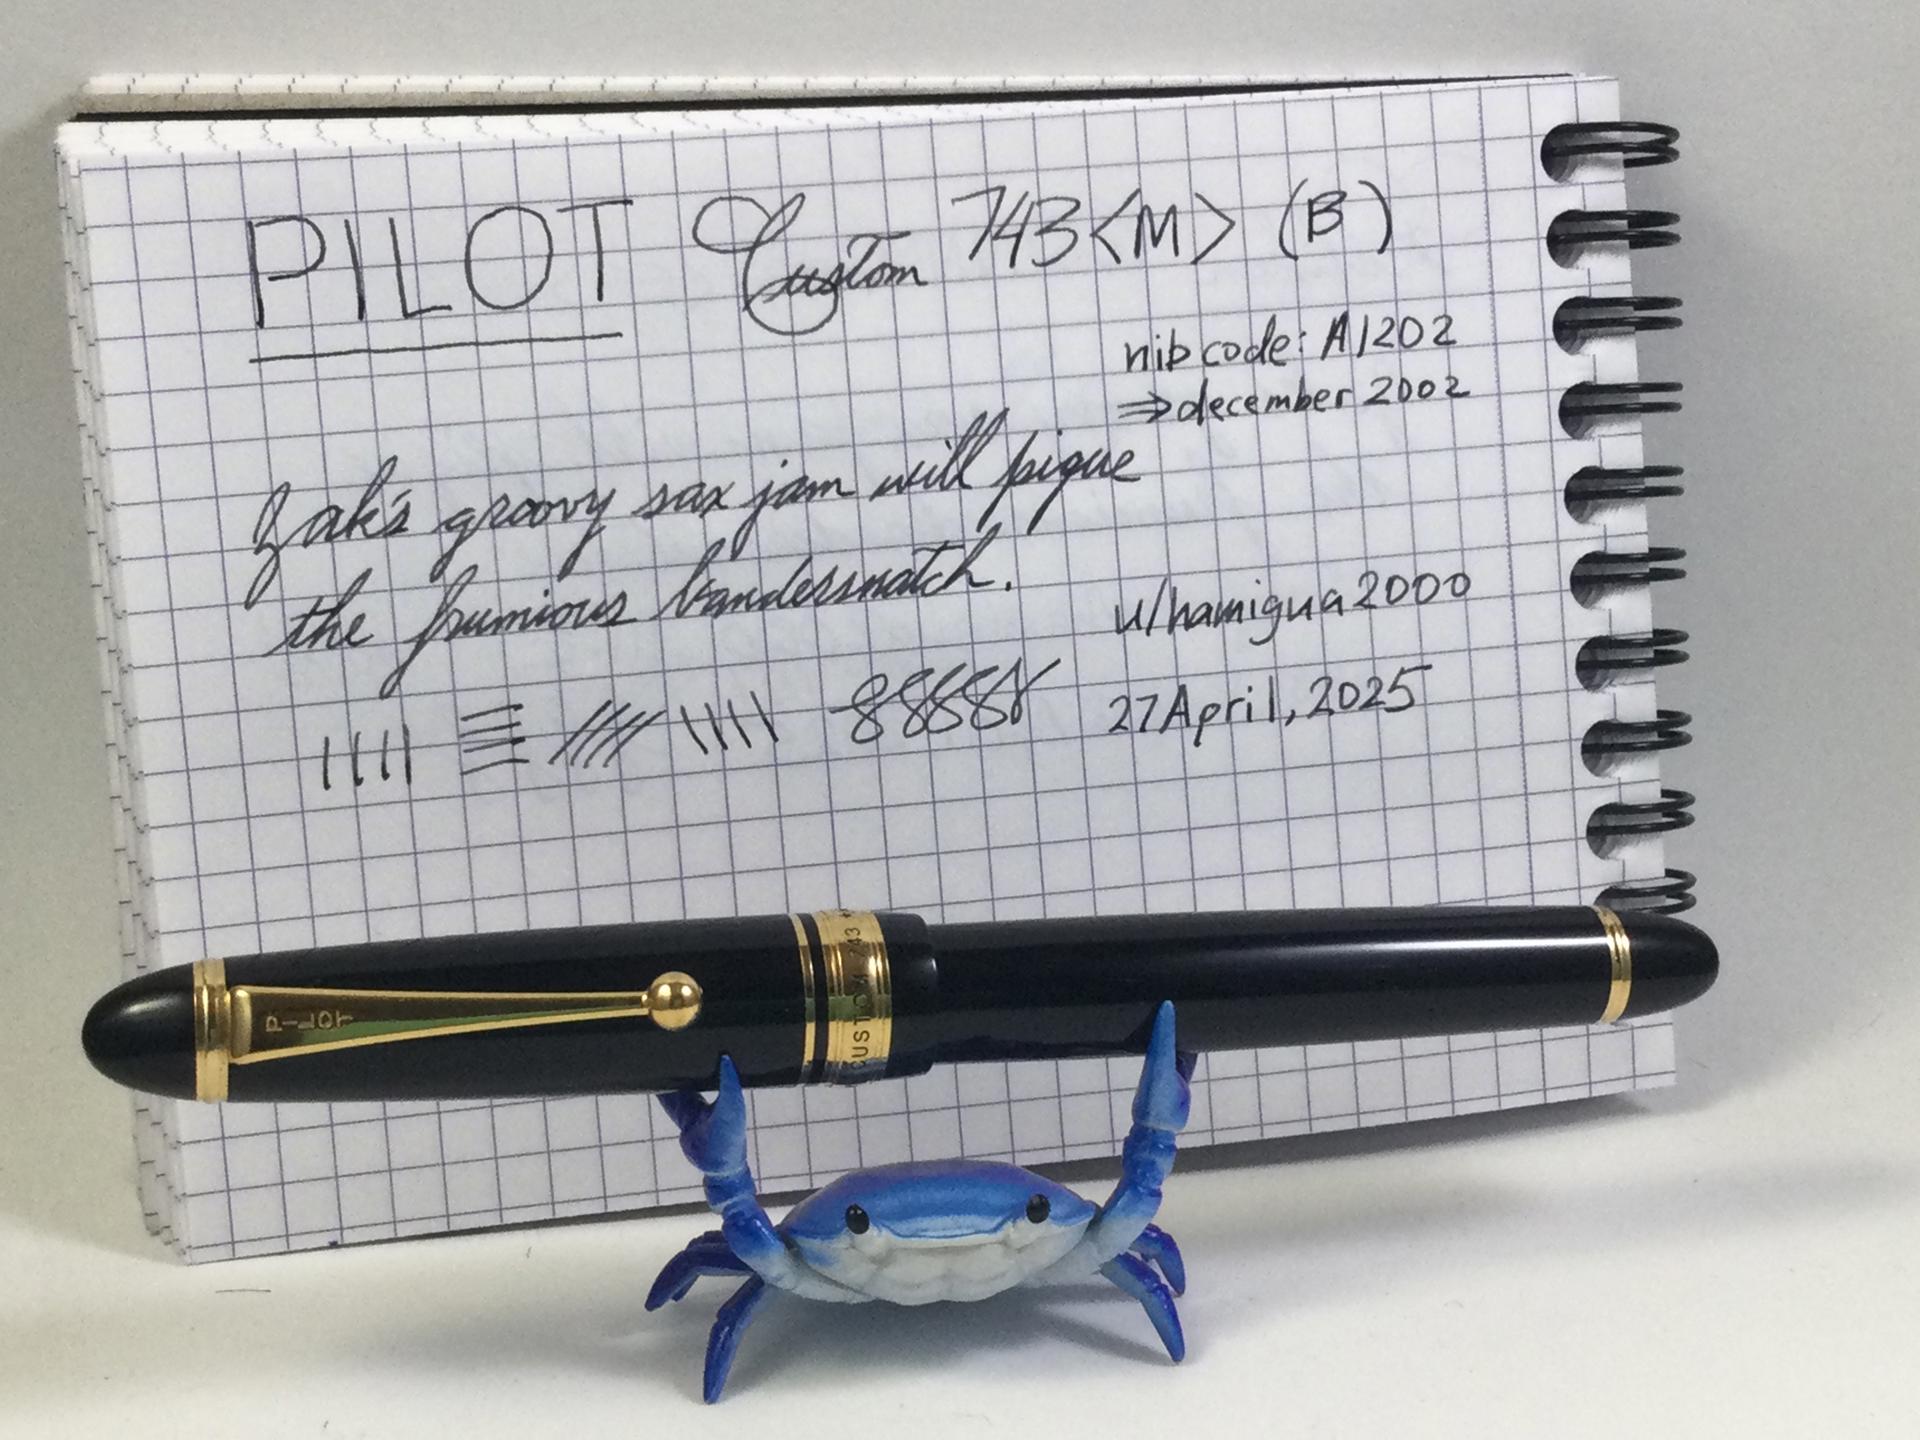 PILOT Custom 743 <M> (B)
nib code: A1202
⇒december 2002
Zak's groovy sax jam will pique
the frumious bandersnatch.
u/hamigua2000
27April, 2025
88888
PILOT
CUSTOM 743